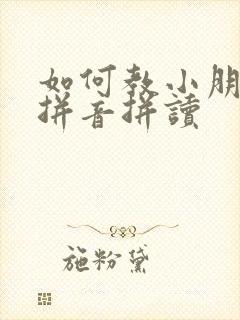 如何教小朋
拼音拼讀
施粉黛